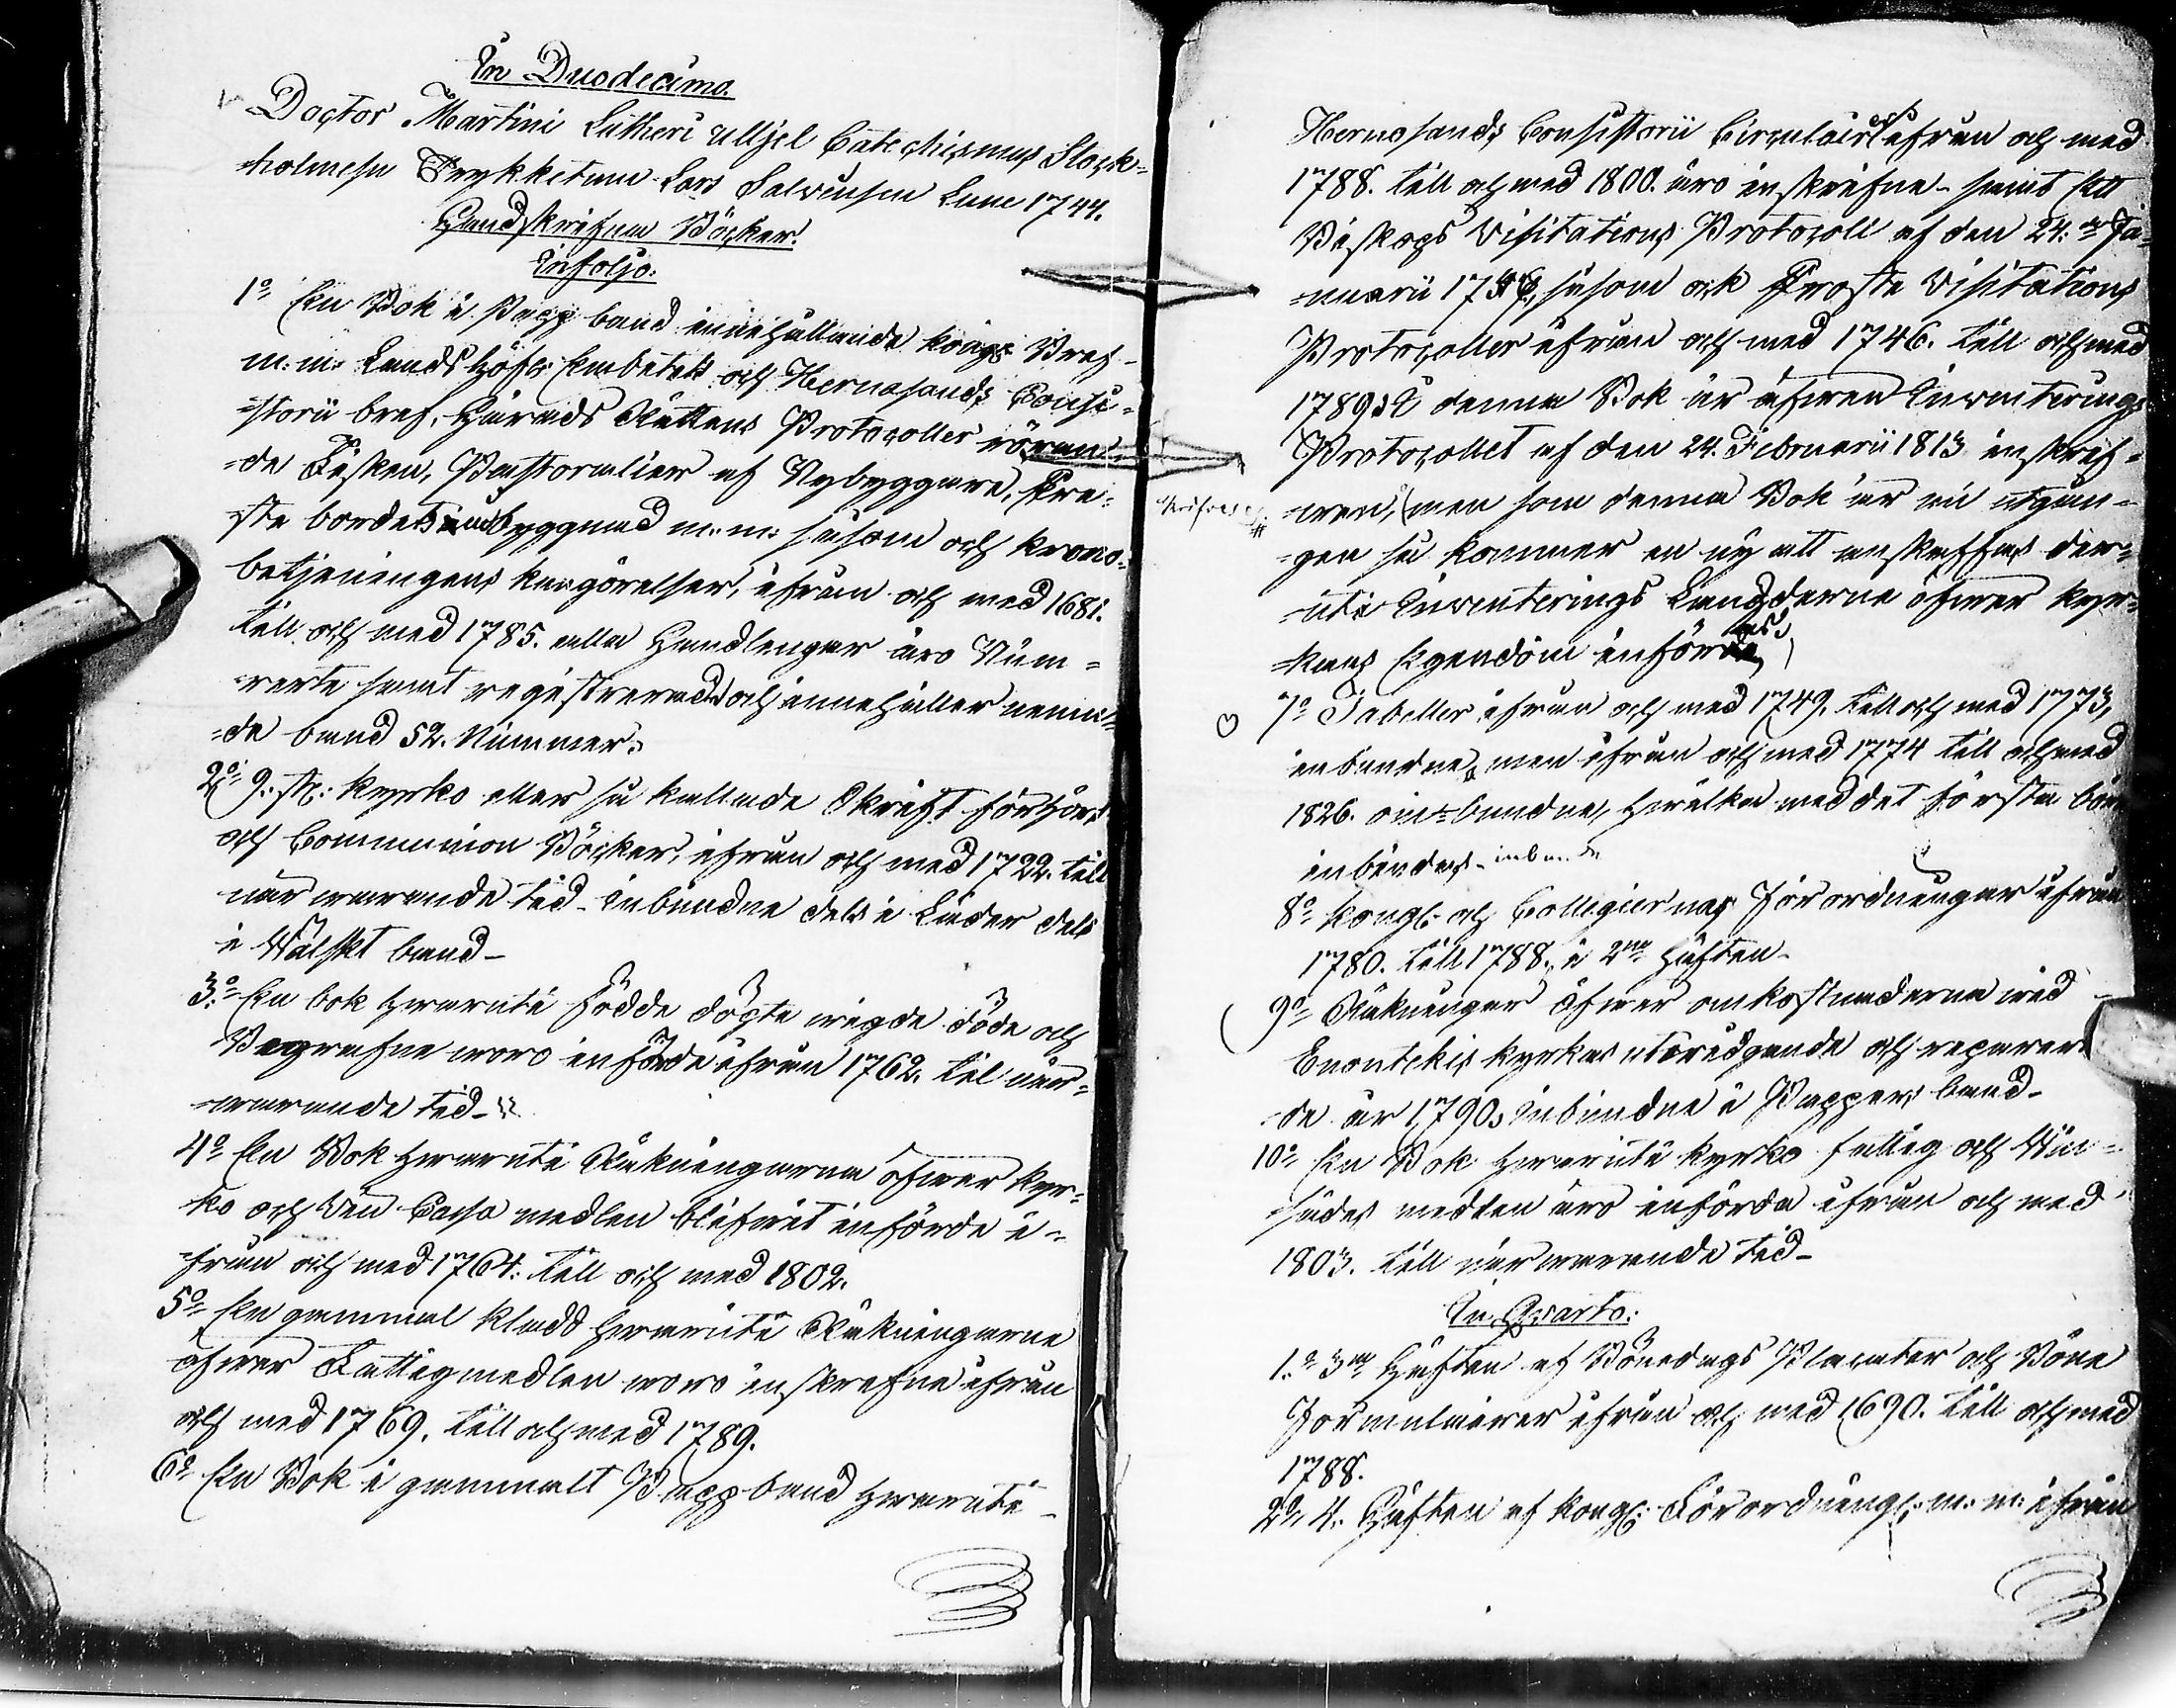 In Duodecimo.
Doctor Martini Lutheri Catechismus Stock-
holmesn Trykketum Lars Salvensen Lane 1744.
Handskrifne Böcker.
In folio.
1o En Bok i Papp band innehållande kongl Bref
m. m. Landshöfd: Embetets och Hernosands Consi-
storii bref, Härads Rättens Protocoller röran-
de Fisken, Pastoralier af Nybyggare, Pre-
ste bordets byggnad m. m: såsom och krono-
betjeningens kungörelser, ifrån och med 1681.
till och med 1785. alla Handlingar äro Num-
rerte samt registrerade och innehåller nämn-
de band 52. Nummer.
2o 9. st: kyrko eller så kallade Skrift förhörs
och Communion Böcker, ifrån och med 1722. till
när warande tid inbundne dels i Läder dels
i Wälskt band
3o En bok hwaruti födde döpte wigde döde och
Begrafne woro införde ifrån 1762. til när-
warande tid
4o En Bok hwaruti Räkningarna öfwer kyr-
ko och Vin Cassa medlen blifwit införde i-
från och med 1764: till och med 1802.
5o En gammal kladd hwaruti Räkningarne
öfwer Fattigmedlen woro inskrefne ifrån
och med 1769. till och med 1789.
6o En Bok i gammalt Pappband hwaruti
Hernosands Consistorii Circulairer ifrån och med
1788. till och med 1800. äro inskrifne samt Ett
Biskops Visitations Protocoll af den 24:de Ja-
nuarii såsom ock Proste Visitations
Protocoller ifrån och med 1746. till och med
1789. I denna Bok är äfwen Inventerings
Protocollet af den 24. Februarii 1813 inskrif-
wen, men som denna Bok är nu utgån-
gen så kommer en ny att anskaffas der-
uti Inventerings Längderne öfwer kyr-
kans Egendom införas
7o Tabeller ifrån och med 1749. till och med 1773,
inbundne, men ifrån och med 1774 till och med
1826. oin-bundne, hwilka med det första bör
inbindas
8o kongl. och Collegiernas Förordningar ifrån
1780. till 1788. i 2ne Häften
9o Räkningar öfwer omkostnaderna wid
Enontekis kyrkas utwidgande och reparer-
de år 1790. Inbundne i Pappers band
10o En Bok hwaruti kyrko fattig och Win-
sädes medlen äro införde ifrån och med
1803. till närwarande tid
In Qvarto:
1.o 3ne Häften af Bönedags Placater och Böne
Formulairer ifrån och med 1690. till och med
1788.
2o 4. Häften af kongl: Förordningr m. m: ifrån